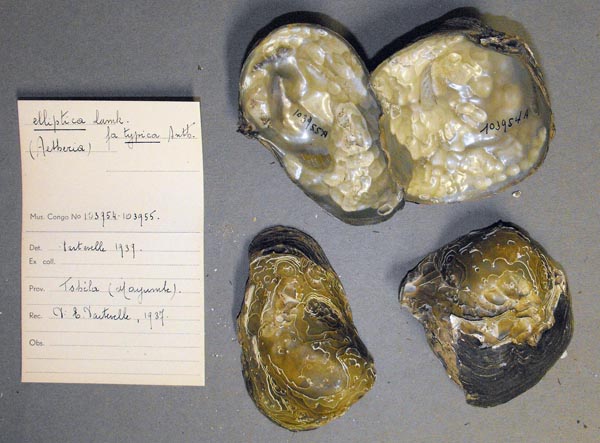 elliptica Lamk.
fa typica Anth.
(Aetheria)
Mus. Congo No 103954-103955.
Det. Dartevelle 1937.
Ex coll.
Prov. Tshila (Mayumbe).
Rec. Dartevelle, 1937.
Obs.
103955A
103954A